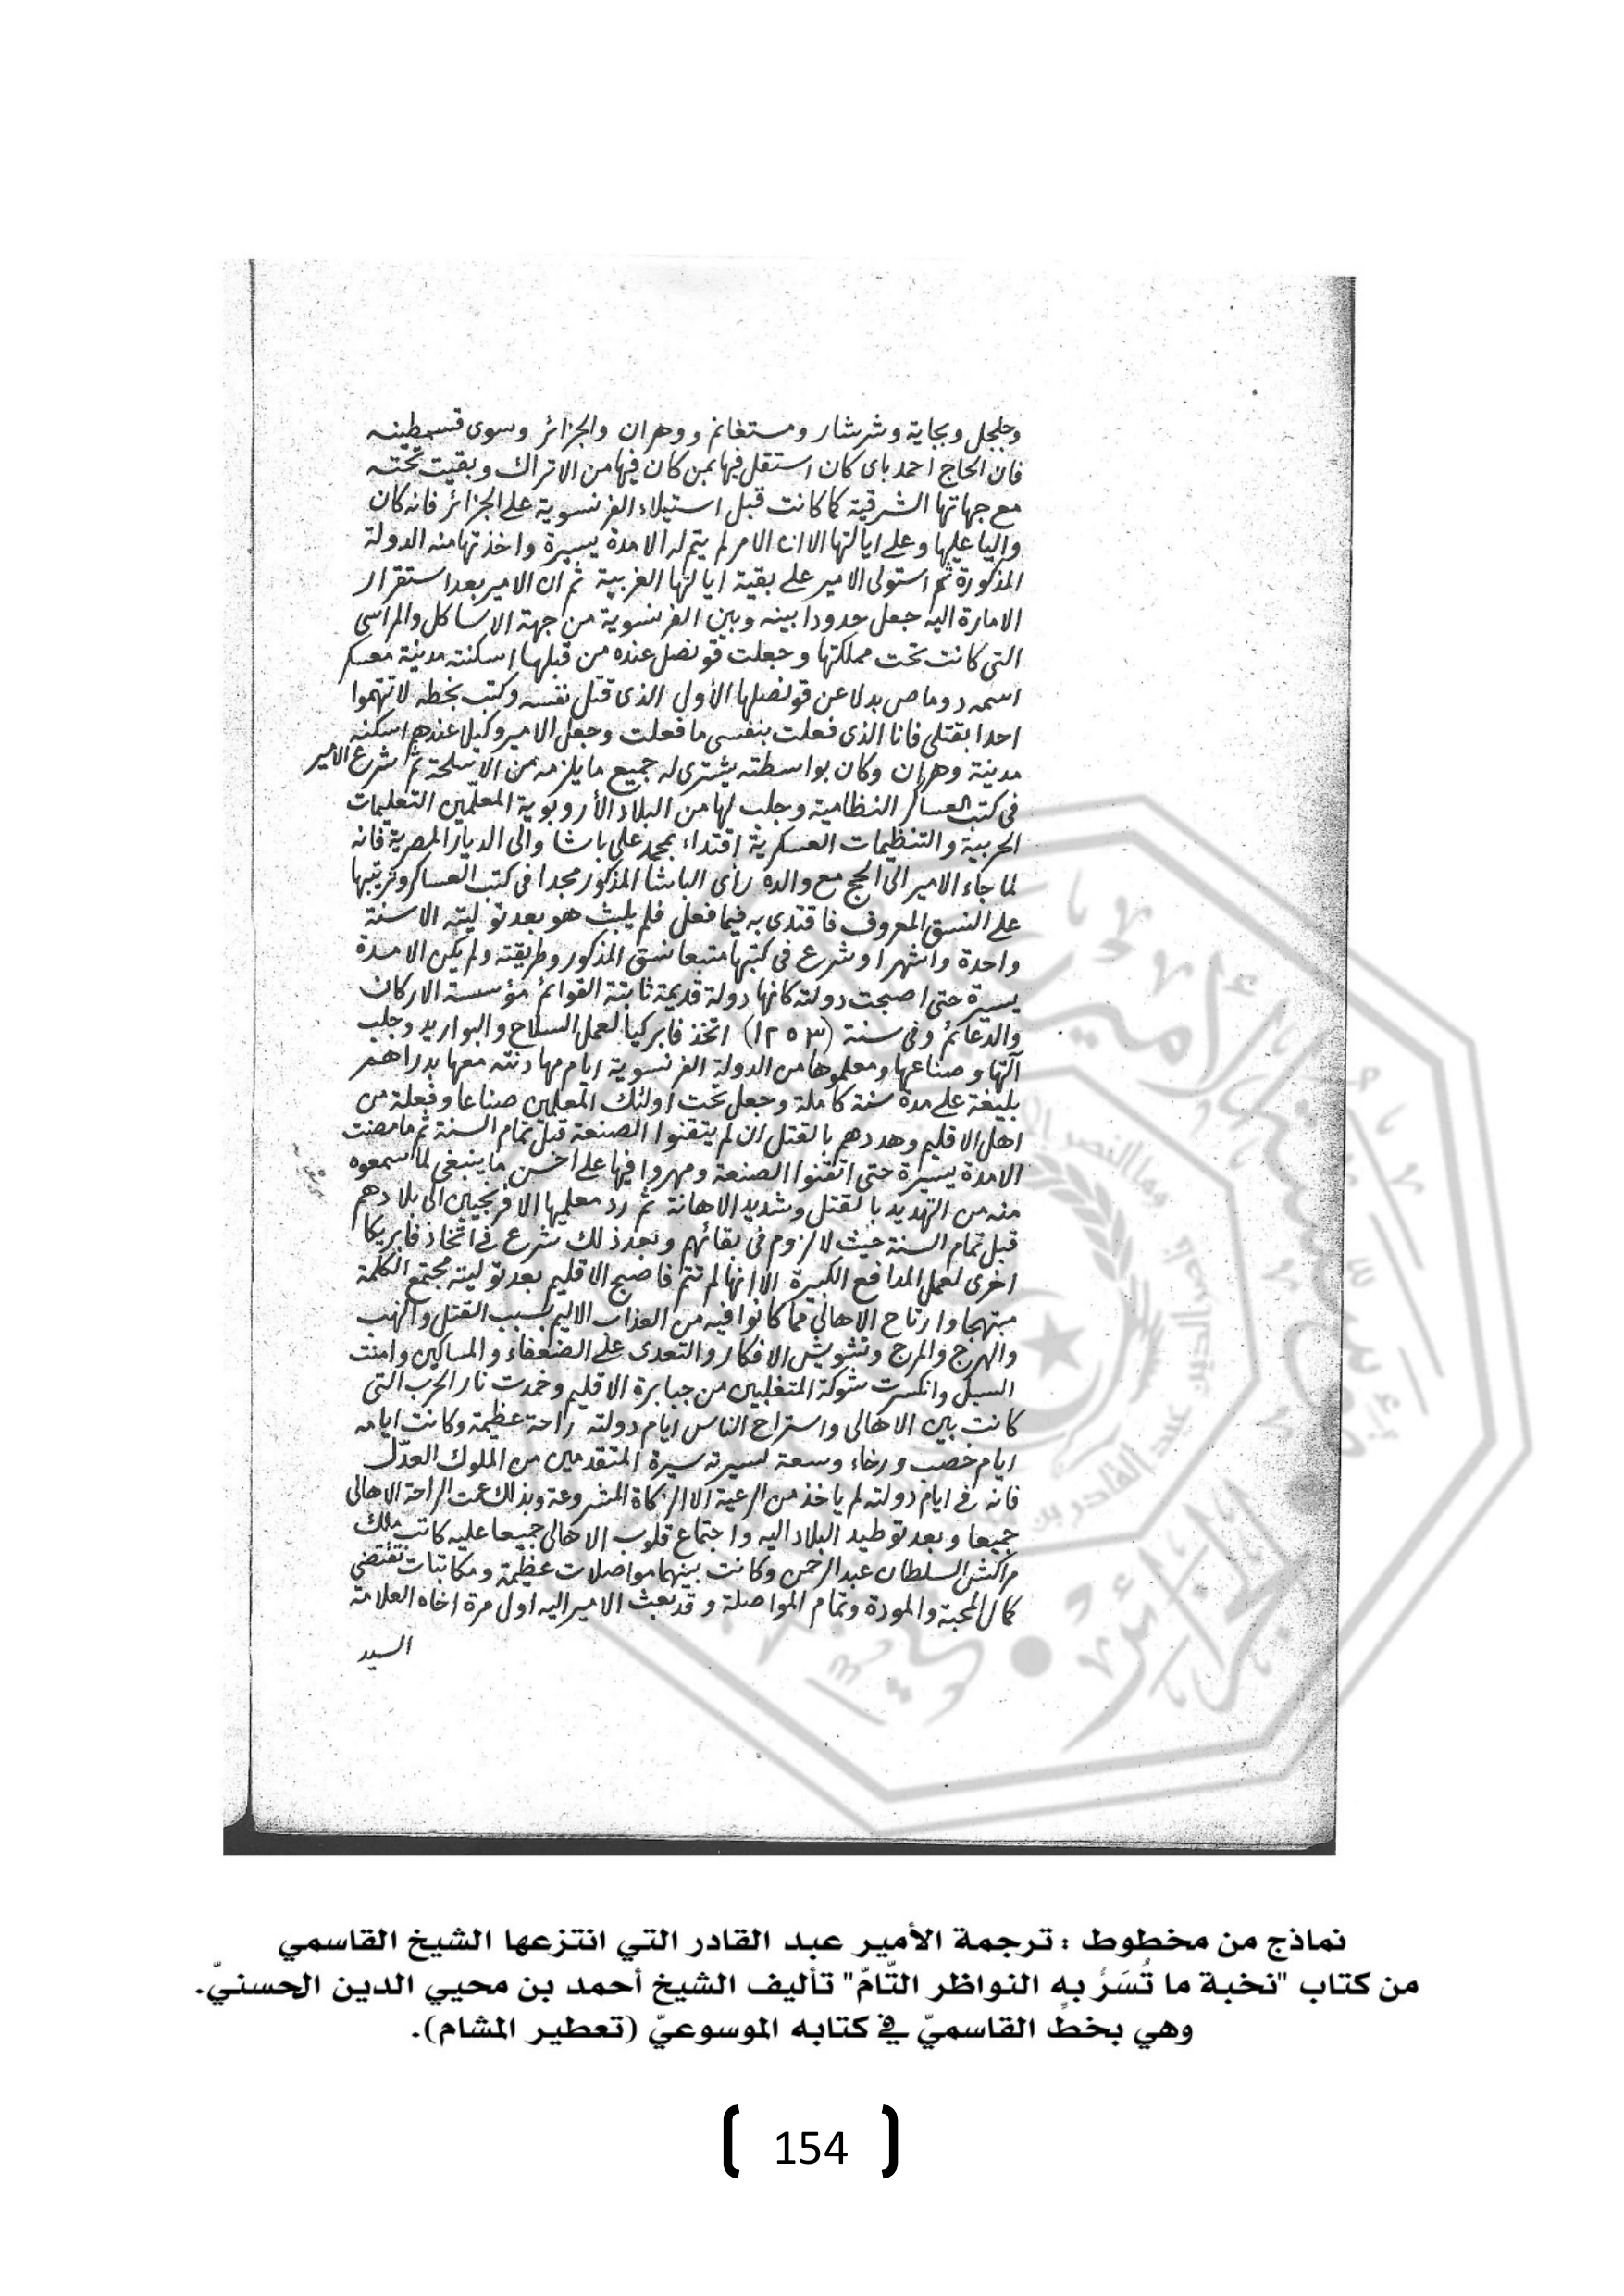 وجلجل وبجاية وشرشار ومستغانم ووهران والجزائر وسوى قسمطينه
فان الحاج احمد باى كان استقل فيها بمن كان فيها من الاتراك وبقيت تحته
مع جهاتها الشرقية كما كانت قبل استيلاء الفرنسوية على الجزائر فانه كان
واليا عليها وعلى ايالتها الا ان الامر لم يتم له الا مدة يسيرة واخذتها منه الدولة
المذكورة ثم استولى الامير على بقية ايالتها الغربية ثم ان الامير بعد استقرار
الامارة اليه جعل حدودا بينه وبين الفرنسوية من جهة الاساكل والمراسى
التى كانت تحت مملكتها وجعلت قونصل عنده من قبلها اسكنته مدينة معسكر
اسمه دوماص بدلا عن قونصلها الأول الذى قتل نفسه وكتب بخطه لا تتهموا
احدا بقتلى فانا الذى فعلت بنفسى ما فعلت وجعل الامير وكيلا عندهم اسكنه
مدينة وهران وكان بواسطته يشترى له جميع ما يلزمه من الاسلحة ثم شرع الامير
فى كتب العساكر النظامية وجلب لها من البلاد الأروبوية المعلّمين التعليمات
الحربية والتنظيمات العسكرية اقتداء بمحمد على باشا والى الديار المصرية فانه
لما جاء الامير الى الحج مع والده رأى الباشا المذكور مجدا فى كتب العساكر وترتيبها
على النسق المعروف فاقتدى به فيما فعل فلم يلبث هو بعد توليته الا سنة
واحدة واشهرا وشرع فى كتبها متبعا نسق المذكور وطريقته ولم يكن الا مدة
يسيرة حتى اصبحت دولته كانها دولة قديمة ثابتة القوائم مؤسسة الاركان
والدعائم وفى سنة (١٢٥٣) اتخذ فابركيا لعمل السلاح والبواريد وجلب
آلتها وصناعها ومعلموها من الدولة الفرنسوية ايام مهادنته معها بدراهم
بليغة على مدة سنة كاملة وجعل تحت اولئك المعلمين صناعا وفعلة من
اهل الاقليم وهددهم بالقتل ان لم يتقنوا الصنعة قبل تمام السنة ثم ما مضت
الا مدة يسيرة حتى اتقنوا الصنعة ومهروا فيها على احسن ما ينبغى لما سمعوه
منه من التهديد بالقتل وشديد الاهانة ثم رد معلميها الافرنجيين الى بلادهم
قبل تمام السنة حيث لا لزوم فى بقائهم وبعد ذلك شرع فى اتخاذ فابريكا
اخرى لعمل المدافع الكبيرة الا انها لم تتم فاصبح الاقليم بعد توليته مجتمع الكلمة
مبتهجا وارتاح الاهالي مما كانوا فيه من العذاب الاليم بسبب القتل والنهب
والهرج والمرج وتشويش الافكار والتعدى على الضعفاء والمساكين وامنت
السبل وانكسرت شوكة المتغلبين من جبابرة الاقليم وخمدت نار الحرب التى
كانت بين الاهالى واستراح الناس ايام دولته راحة عظيمة وكانت ايامه
ايام خصب ورخاء وسعة لسيرته سيرة المتقدمين من الملوك العدّل
فانه فى ايام دولته لم ياخذ من الرعية الا الزكاة المشروعة وبذلك عمت الراحة الاهالى
جميعا وبعد توطيد البلاد اليه واجتماع قلوب الاهالى جميعا عليه كاتب ملك
مراكش السلطان عبد الرحمن وكانت بينهما مواصلات عظيمة ومكاتبات تقتضى
كمال المحبة والمودة وتمام المواصلة وقد بعث الامير اليه اول مرة اخاه العلامة
السيد
نماذج من مخطوط : ترجمة الأمير عبد القادر التي انتزعها الشيخ القاسمي
من كتاب "نخبة ما تُسَرُّ به النواظر التّامّ" تأليف الشيخ أحمد بن محيي الدين الحسنيّ.
وهي بخطِّ القاسميّ في كتابه الموسوعيّ (تعطير المشام).
154